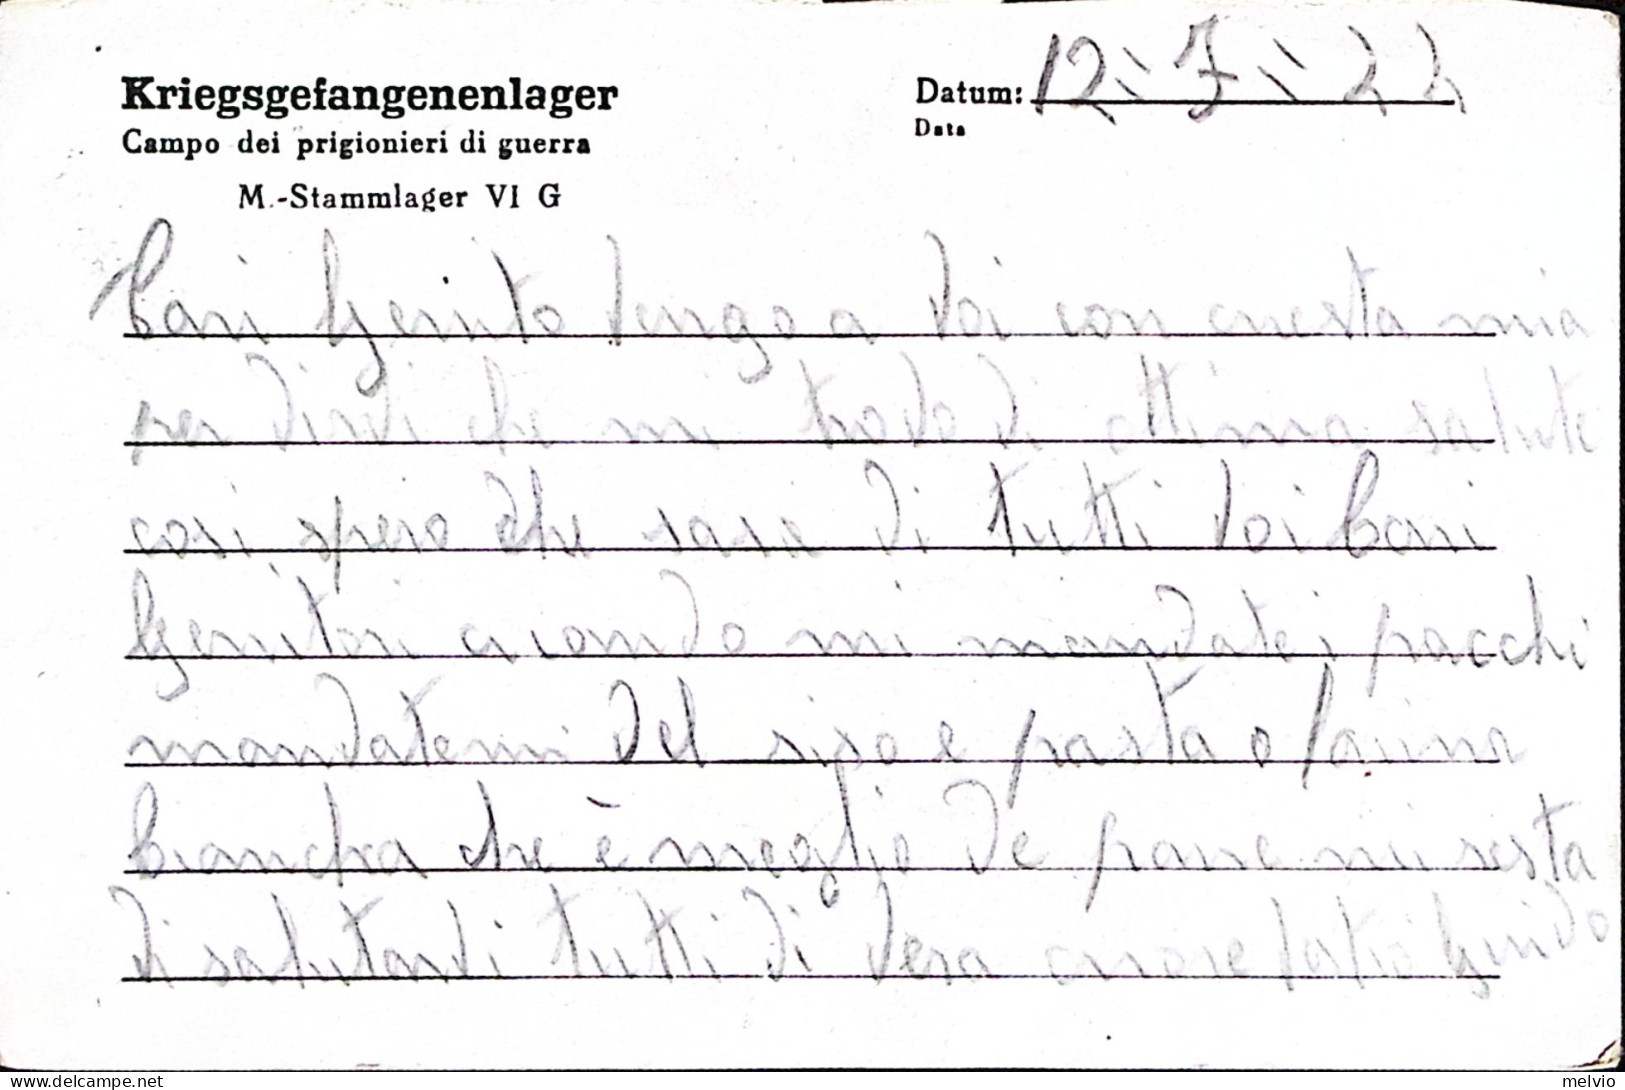 Kriegsgefangenenlager
Campo dei prigionieri di guerra
M.-Stammlager VI G
Datum: 12-7-44
Data
Cari Genito Vengo a Voi con cuesta mia
per dirvi che mi trovo di ottima salute
cosi spero che sara di tutti Voi Cari
Genitori cuando mi mandate i pacchi
mandatemi del riso e pasta o farina
biancha che è meglio de pane mi resta
di salutarvi tutti di vera cuore Guido
delcampe.net
melvio